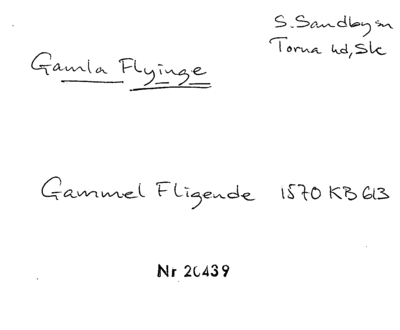 S. Sandby sn
Torna hd, Sk
Gamla Flyinge
Gammel Fligende 1570 KB 613
Nr 20439